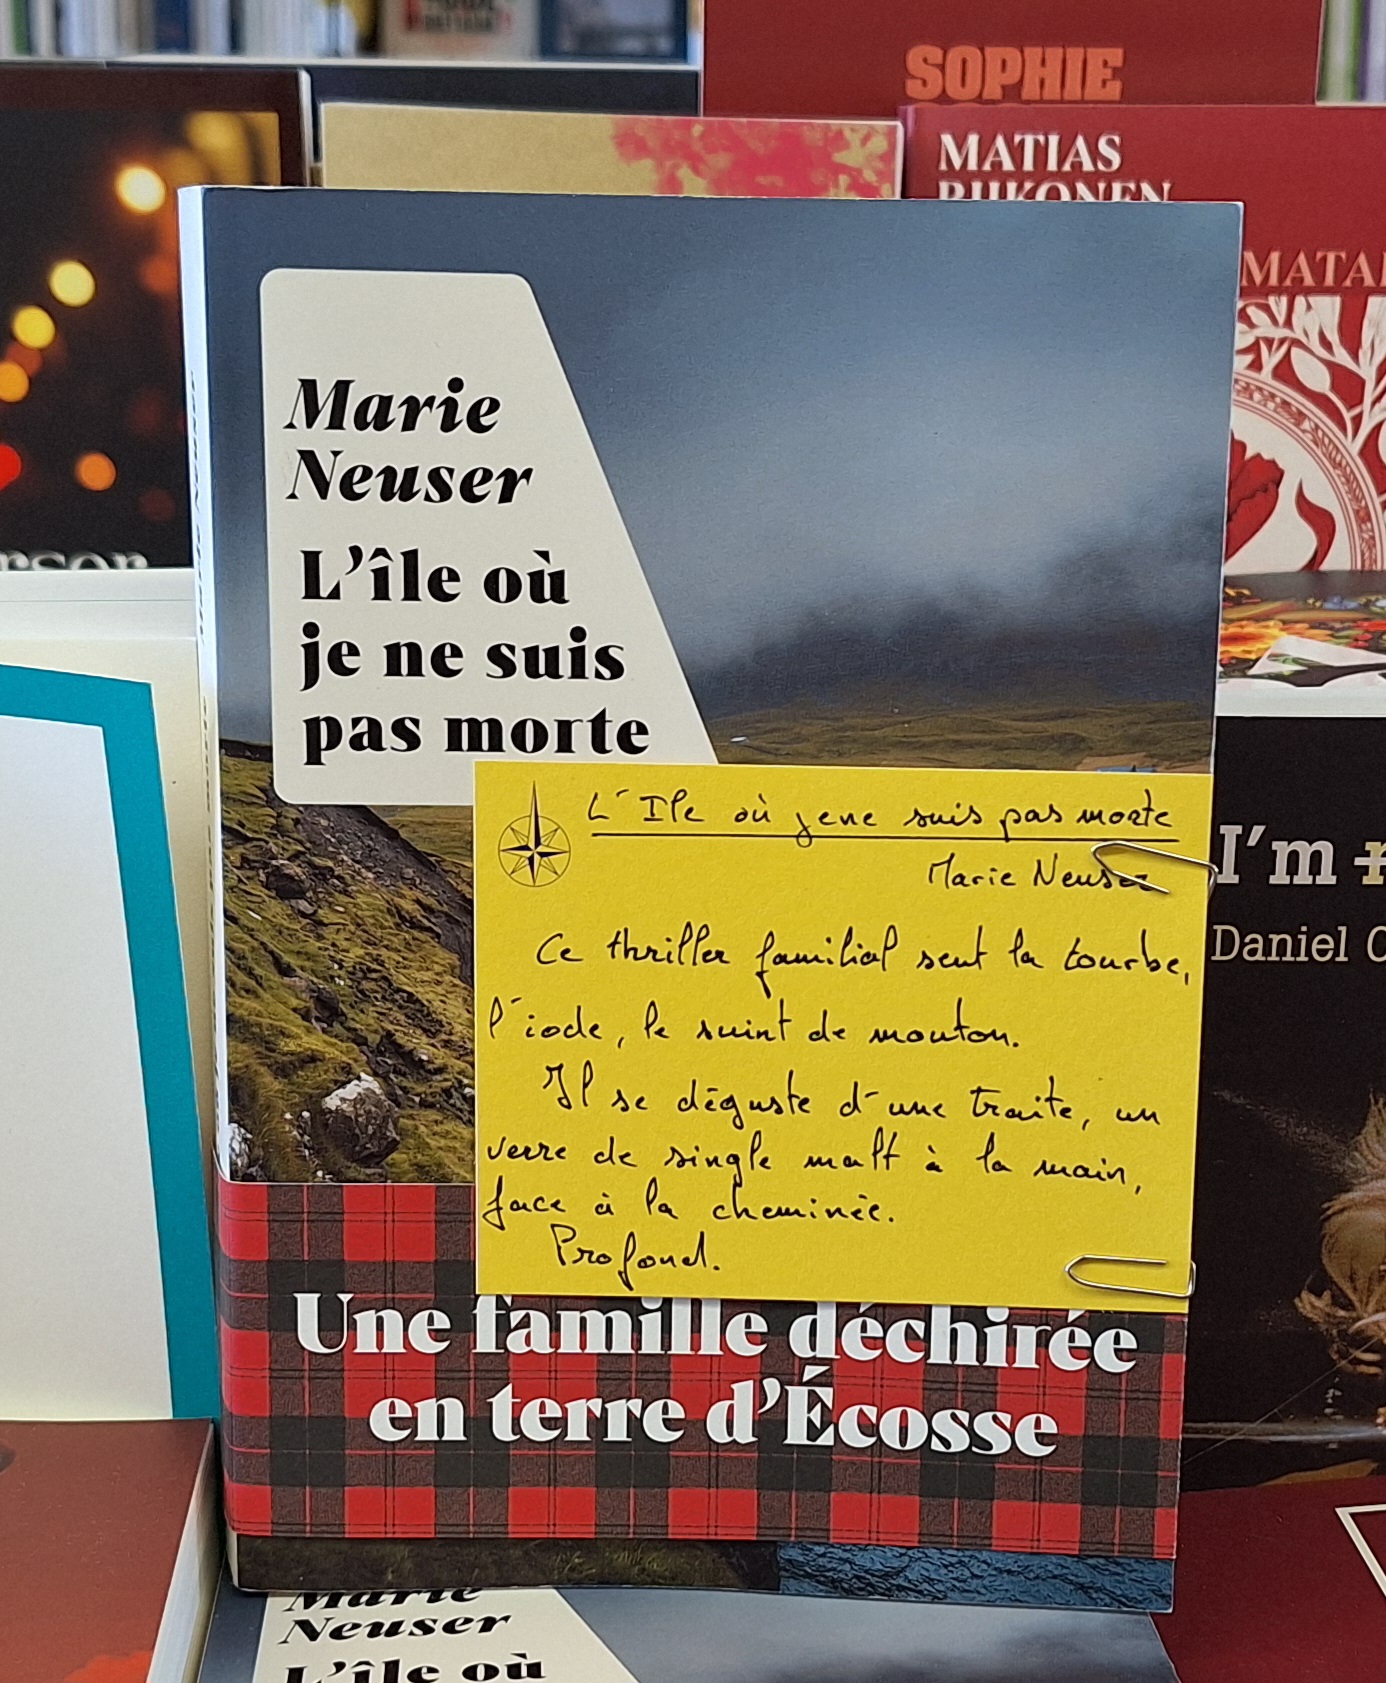 SOPHIE
MATIAS
RIIKONEN
MATA
Marie
Neuser
L'île où
je ne suis
pas morte
L'Ile où je ne suis pas morte
Marie Neuser
Ce thriller familial sent la tourbe,
l'iode, le suint de mouton.
Il se déguste d'une traite, un
verre de single malt à la main,
face à la cheminée.
Profond.
Une famille déchirée
en terre d'Écosse
I'm
Daniel C
Marie
Neuser
L'île où